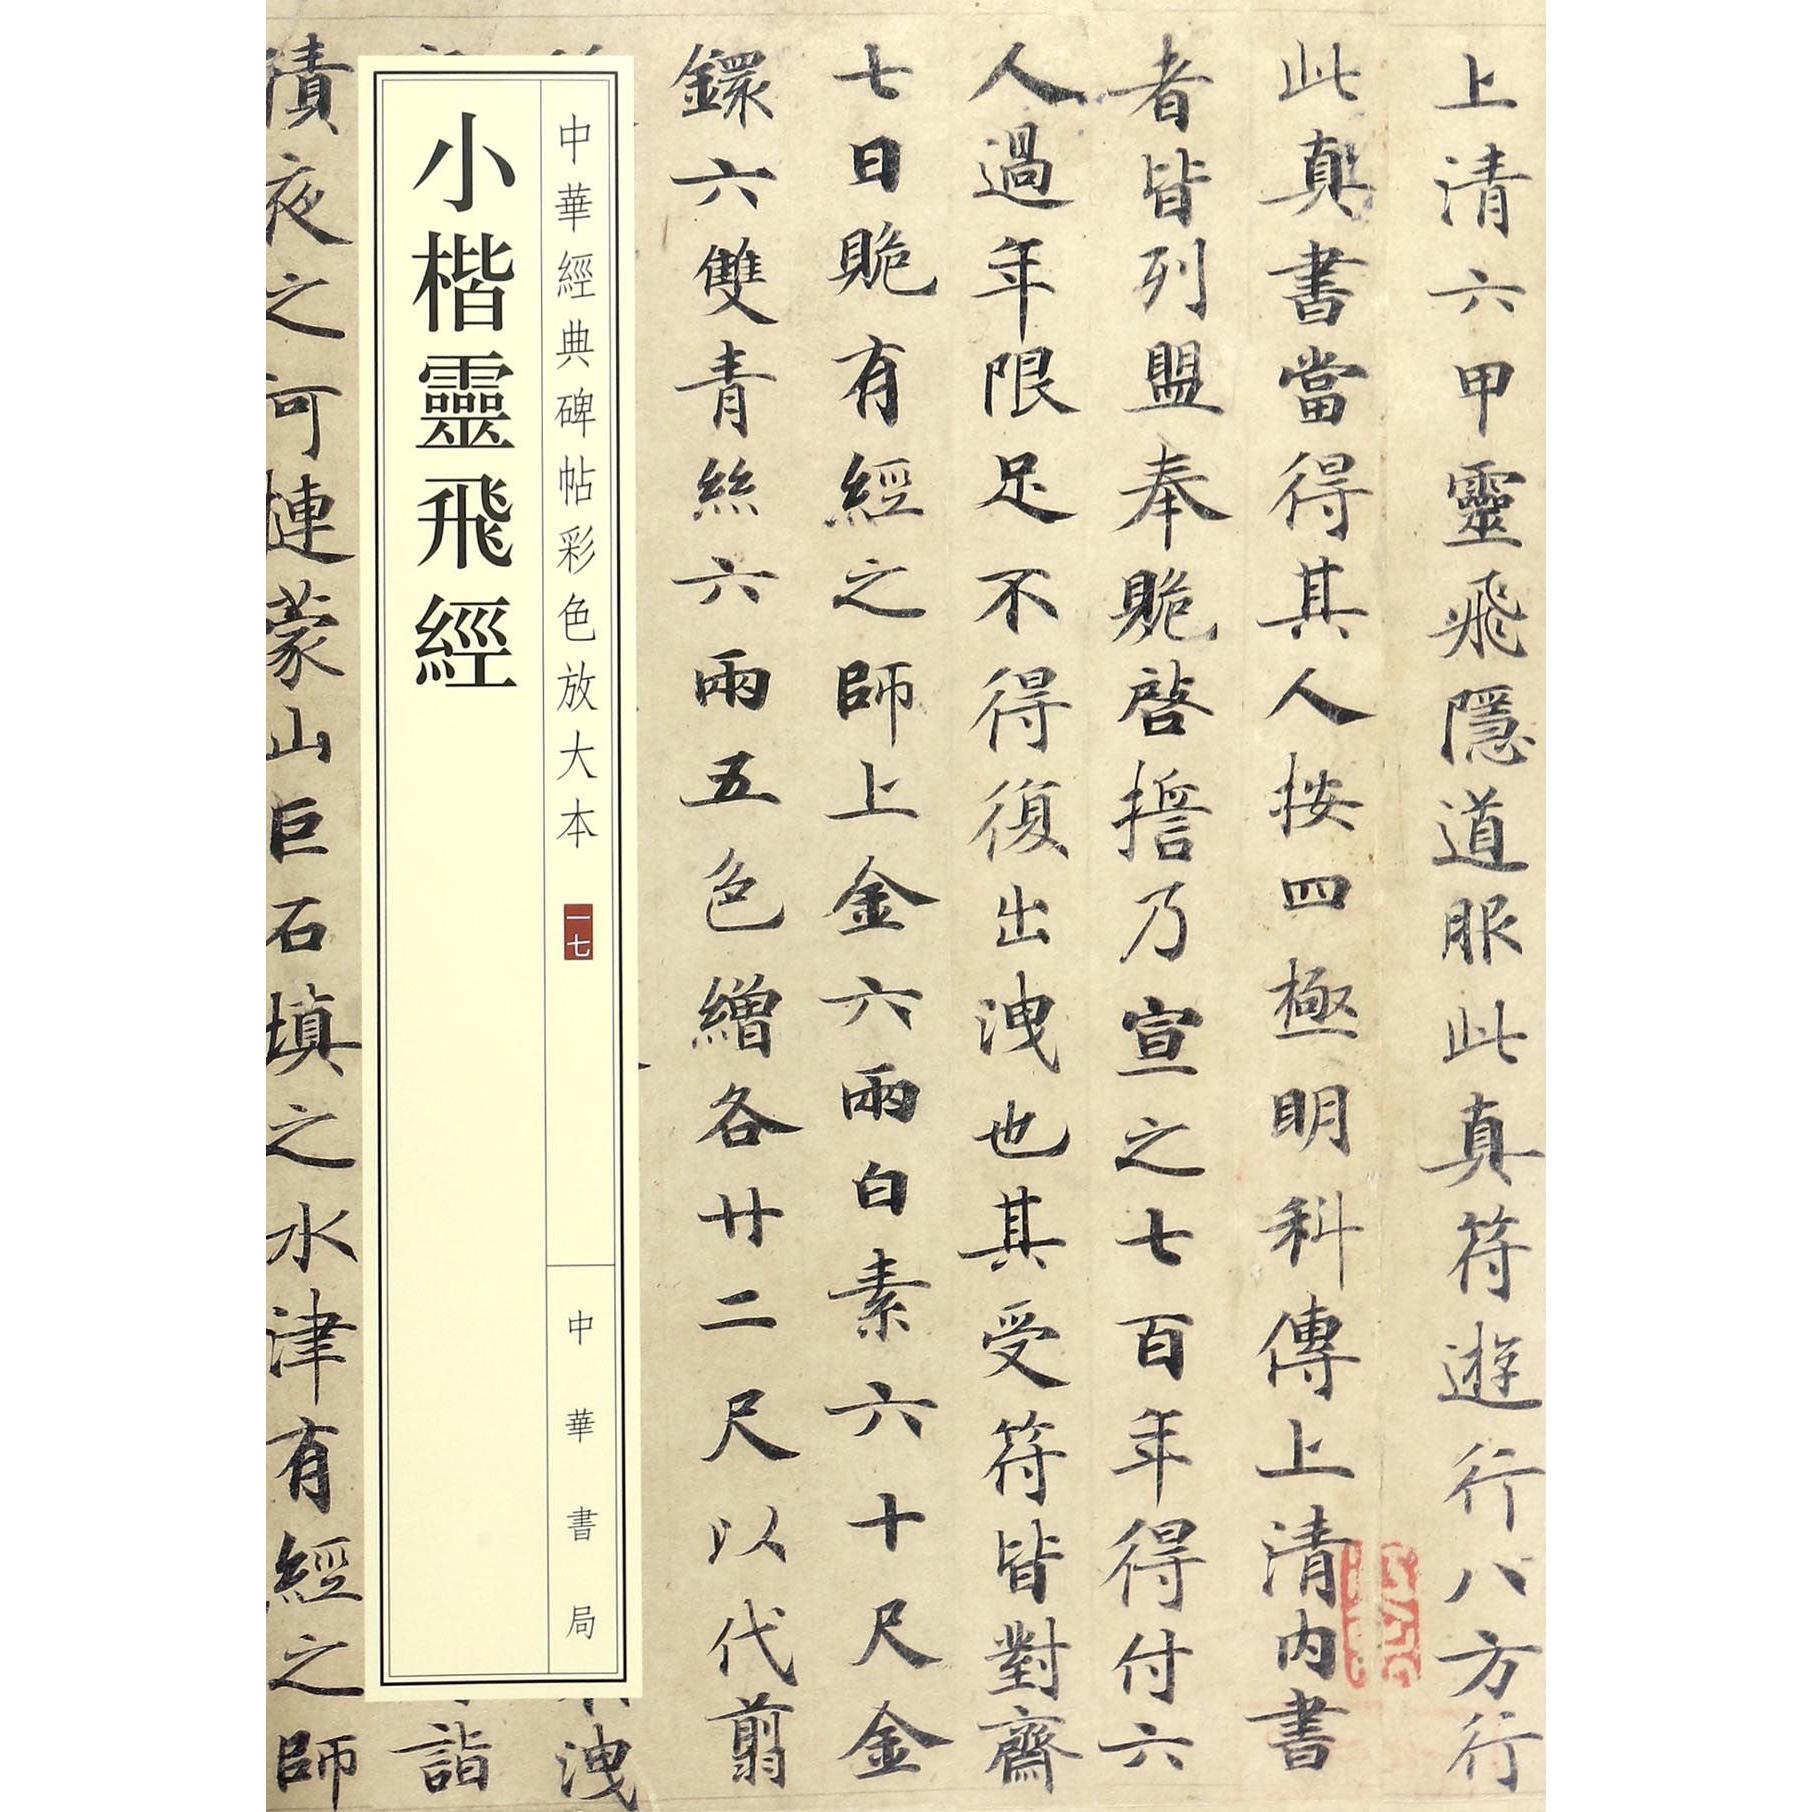 上清六甲靈飛隱道服此真符遊行八方行
此真書當得其人按四極明科傳上清內書
者皆列盟奉䞈啓擔乃宣之七百年得付六
人過年限足不得復出洩也其受符皆對齋
七日䞈有經之師上金六兩白素六十尺金
鐶六雙青絲六兩五色繒各廿二尺以代翦
洩
詣
積夜之河連蒙山巨石填之水津有經之師
中華經典碑帖彩色放大本 一七
小楷靈飛經
中華書局